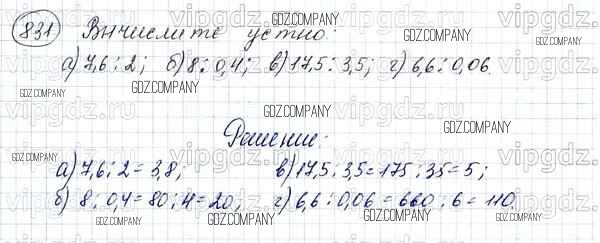 831 Вычислите устно:
а) 7,6 : 2; б) 8 : 0,4; в) 17,5 : 3,5; г) 6,6 : 0,06.
Решение:
а) 7,6 : 2 = 3,8; в) 17,5 : 3,5 = 175 : 35 = 5;
б) 8 : 0,4 = 80 : 4 = 20; г) 6,6 : 0,06 = 660 : 6 = 110.
vipgdz.ru
GDZ.COMPANY